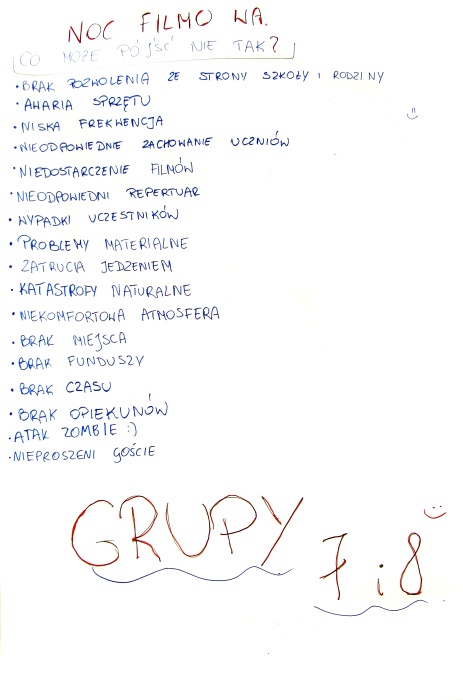 NOC FILMOWA.
CO MOŻE PÓJŚĆ NIE TAK?
• BRAK POZWOLENIA ZE STRONY SZKOŁY I RODZINY
• AWARIA SPRZĘTU
• NISKA FREKWENCJA
• NIEODPOWIEDNIE ZACHOWANIE UCZNIÓW
• NIEDOSTARCZENIE FILMÓW
• NIEODPOWIEDNI REPERTUAR
• WYPADKI UCZESTNIKÓW
• PROBLEMY MATERIALNE
• ZATRUCIA JEDZENIEM
• KATASTROFY NATURALNE
• NIEKOMFORTOWA ATMOSFERA
• BRAK MIEJSCA
• BRAK FUNDUSZY
• BRAK CZASU
• BRAK OPIEKUNÓW
• ATAK ZOMBIE :)
• NIEPROSZENI GOŚCIE
GRUPY
7 i 8